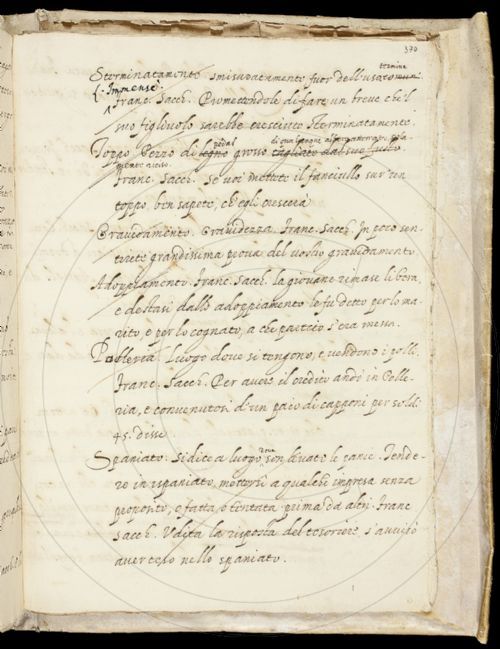 370
termine
Sterminatamente. Smisuratamente fuor dell'usato
Immense.
Franc. Sacch. Promettendole di fare un breve che'l
suo figliuolo sarebbe cresciuto sterminatamente.
pedal
Toppo. Pezzo di legno grosso tagliato dal suo
Franc. Sacch. Se voi mettete il fanciullo sur un
toppo, ben sapete, ch'egli crescerà
Gravidamento. Gravidezza. Franc. Sacch. In poco sen-
tirete grandissima prova del vostro gravidamento
Adoppiamento. Franc. Sacch. la giovane rimase libera,
e destasi dallo adoppiamento le fu detto per lo ma-
rito, e per lo cognato, a che partito s'era messa.
Polleria. Luogo dove si tengono, e vendono i polli.
Franc. Sacch. Per avere il credito andò in Polle-
ria, e convenutosi d'un paio di capponi per sold.
45. disse
Spaniato. Si dice a luogo, donde son levate le panie. Tende-
re in ispaniato, mettersi a qualche impresa senza
proposito, o fatta, o tentata prima da altri. Franc
Sacch. Udita la risposta del tesoriere, s'avvisò
aver teso nello spaniato.